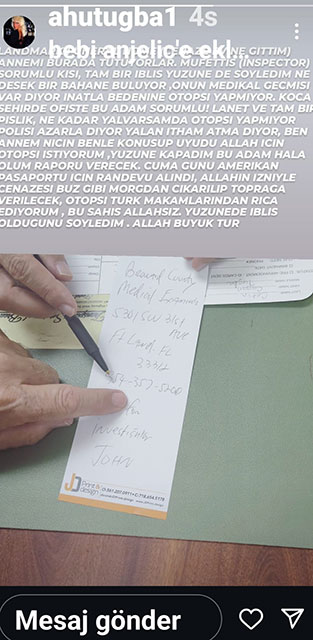 ahutugba1 4s
bebi anjelic e ekl...
ANNEMI BURADA TUTUYORLAR. MUFETTIS (INSPECTOR)
SORUMLU KISI, TAM BIR IBLIS YUZUNE DE SOYLEDIM NE
DESEK BIR BAHANE BULUYOR ,ONUN MEDIKAL GECMISI
VAR DIYOR INATLA BEDENINE OTOPSI YAPMIYOR. KOCA
SEHIRDE OFISTE BU ADAM SORUMLU! LANET VE TAM BIR
PISLIK, NE KADAR YALVARSAMDA OTOPSI YAPMIYOR
POLISI AZARLA DIYOR YALAN ITHAM ATMA DIYOR, BEN
ANNEM NICIN BENLE KONUSUP UYUDU ALLAH ICIN
OTOPSI ISTIYORUM ,YUZUNE KAPADIM BU ADAM HALA
OLUM RAPORU VERECEK. CUMA GUNU AMERIKAN
PASAPORTU ICIN RANDEVU ALINDI, ALLAHIN IZNIYLE
CENAZESI BUZ GIBI MORGDAN CIKARILIP TOPRAGA
VERILECEK, OTOPSI TURK MAKAMLARINDAN RICA
EDIYORUM , BU SAHIS ALLAHSIZ. YUZUNEDE IBLIS
OLDUGUNU SOYLEDIM . ALLAH BUYUK TUR
County
Medical
5301 SW 31st
AVE
Ft Laud FL
33312
954-357-5200
Investigator
JOHN
JD Print &
design
Mesaj gönder